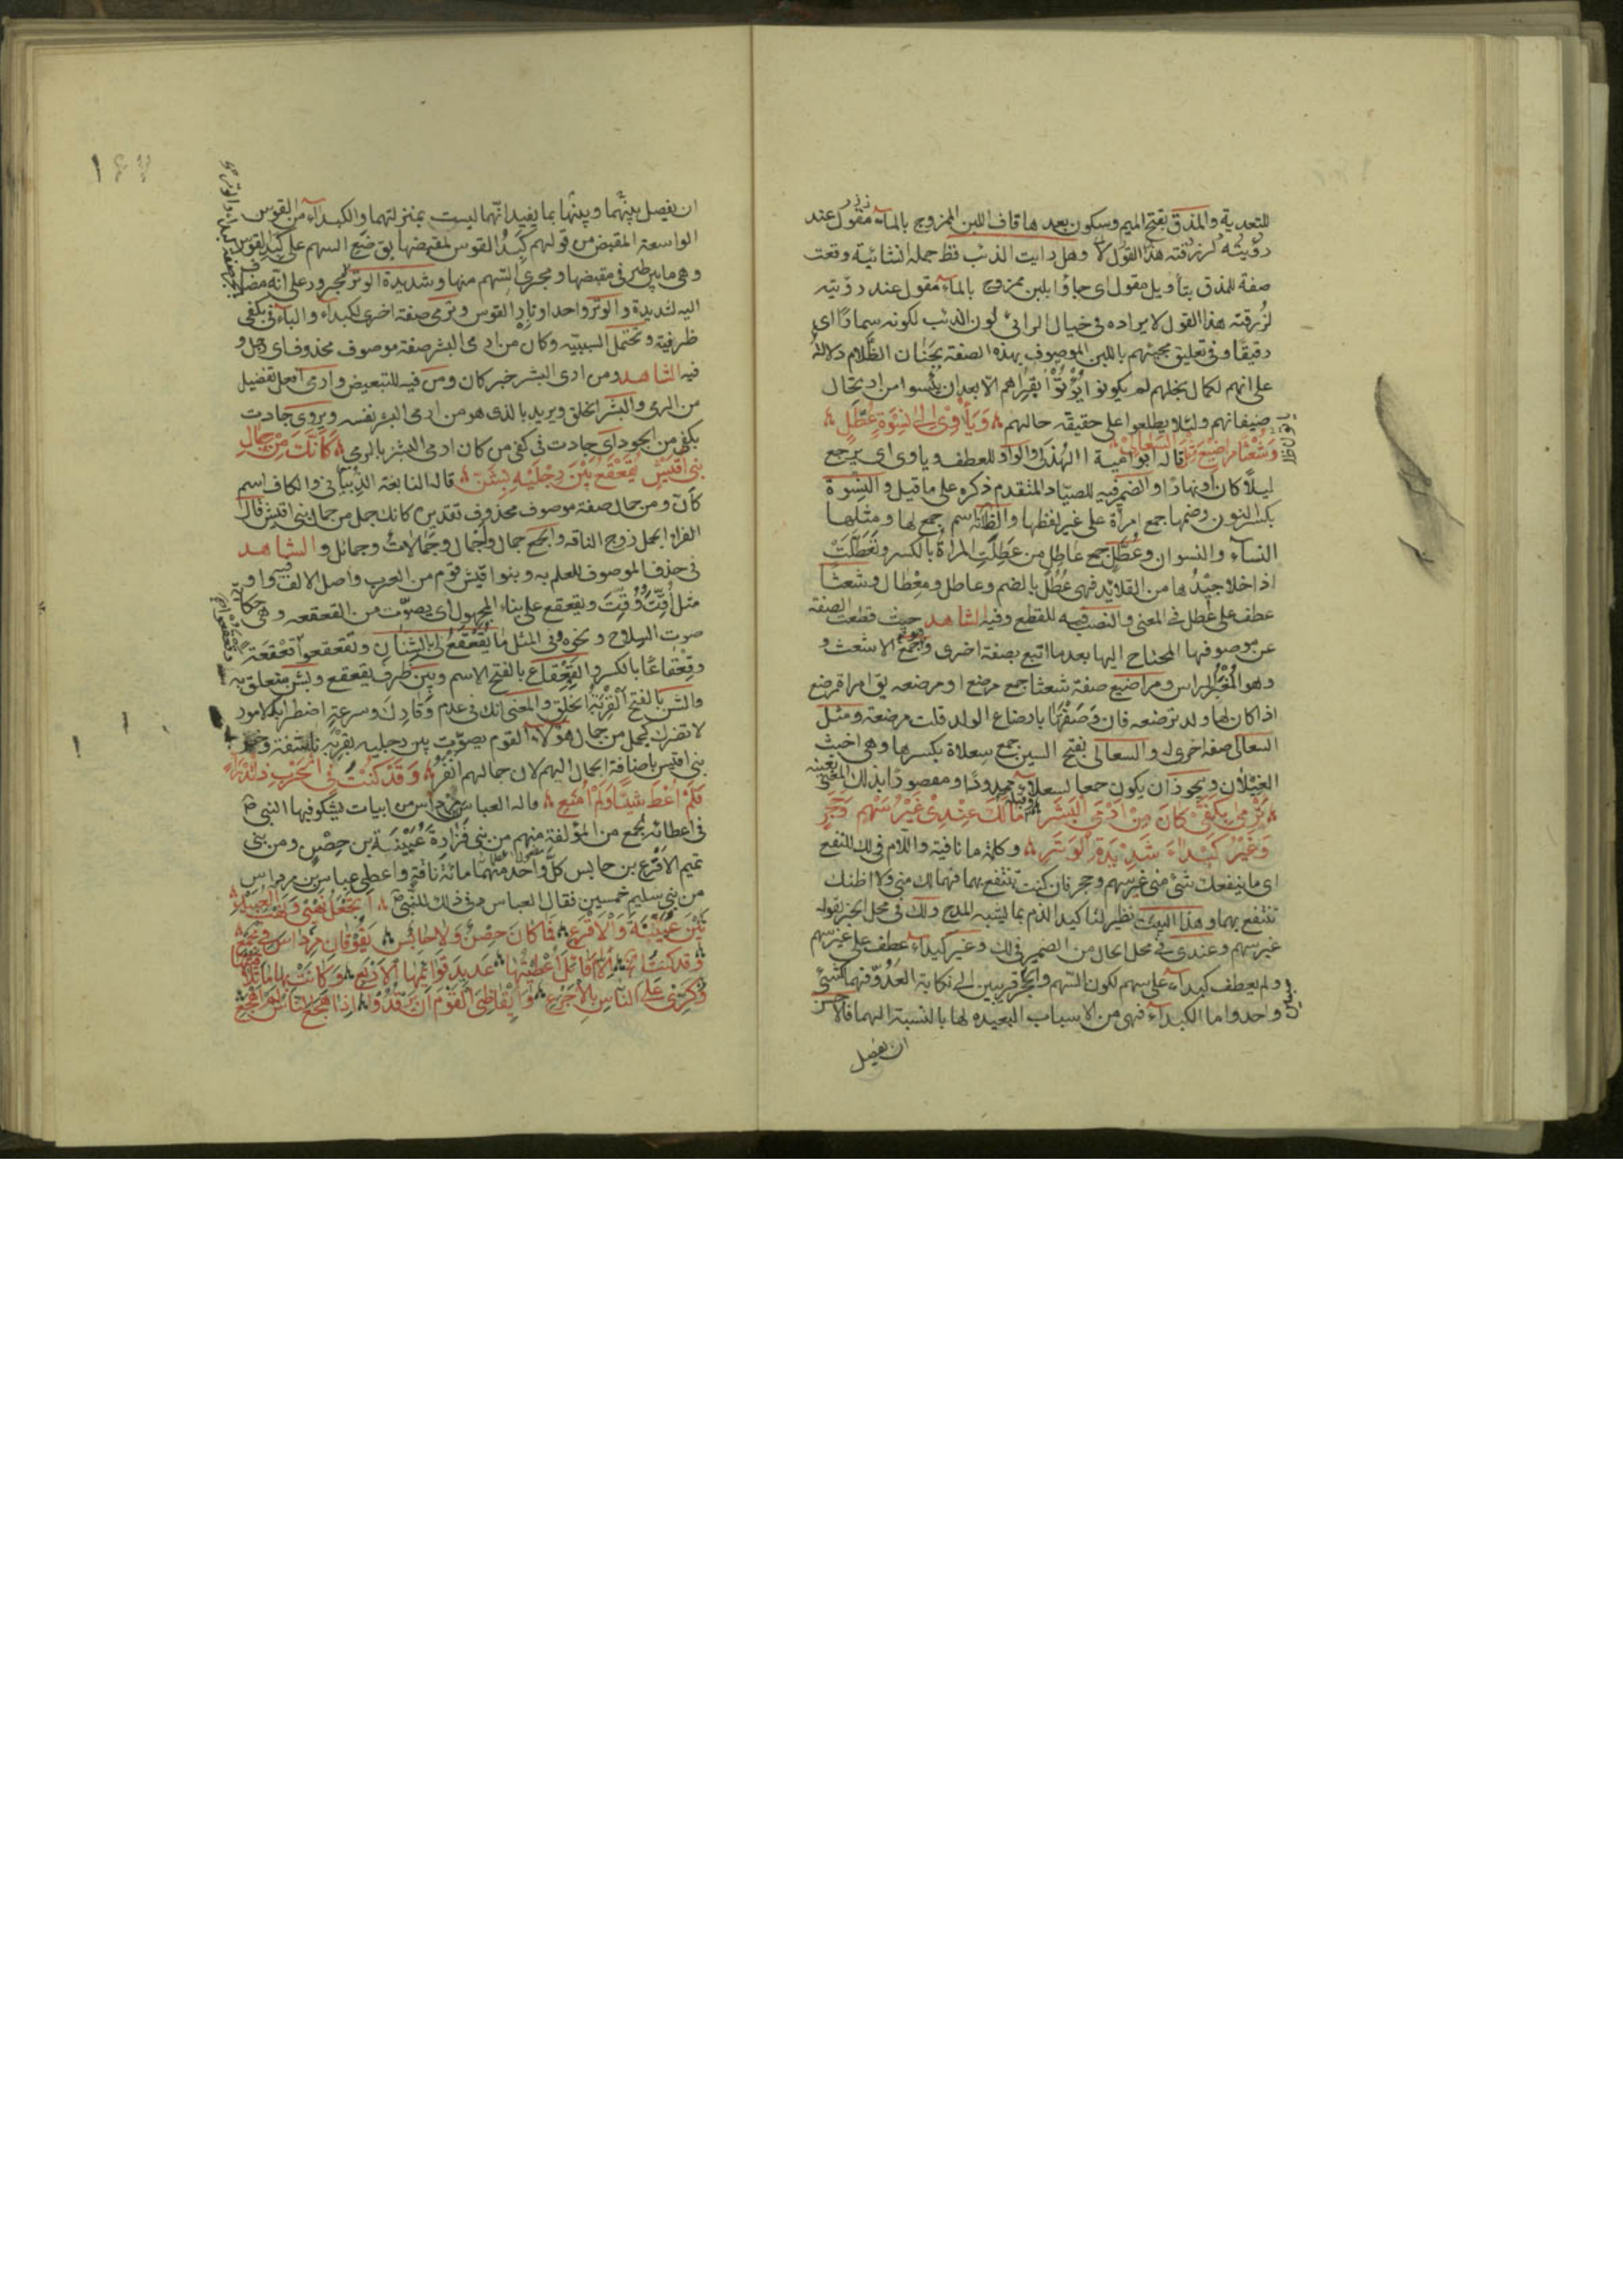 للتعدية والمذق بفتح الميم وسكون بعدها قاف اللبن الممزوج بالمآء مقول عند
رؤيته لزرقته هذا القول لا وهل رايت الذئب قظ جملة انشائية وقعت
صفة للمذق بتأويل مقول اى جاؤا بلبن ممزوج بالمآء مقول عند رؤيته
لزُرقته هذا القول لايراده فى خيال الرائى لون الذئب لكونه سمارًا اى
رقيقًا وفى تعليق مجيئهم باللبن الموصوف بهذه الصفة بجَنَان الظَّلام دلالة
على انهم لكمال بخلهم لم يكونوا يُؤْتُوْا بقِراهم الّا بعد ان يئسوا من ارتحال
ضيفانهم ولئلا يطلعوا على حقيقة حالهم وَيَأْوِىْ اِلىٰ نِسْوَةٍ عُطَّلٍ
وَشُعْثًا مراضيعَ مِثْلِ السَّعالىْ قاله ابو امية الهُذَلى والواو للعطف وياوى اى يرجع
ليلًا كان او نهارًا والضمير فيه للصيّاد المتقدم ذكره على ما قيل والنِسْوة
بكسر النون وضمها جمع امرأة على غير لفظها والظّ انّه اسم جمع لها ومثلها
النسآء والنسوان وعُطَّل جمع عاطِلٍ من عَطِلَتِ المرأةُ بالكسر وتَعَطَّلَتْ
اذا خلا جِيْدُها من القلائد فهى عُطُلٌ بالضم وعاطل ومِعْطال وشعثًا
عطف على عُطّل فى المعنى والنصب فيه للقطع وفيه الشاهد حيث قطعت الصفة
عن موصوفها المحتاج اليها بعد ما اتبع بصفة اخرى وهو جمع الاشعث و
وهو المُغْبَرّ الراس ومراضيع صفة شعثا جمع مرضع او مرضعه يق امراة مرضع
اذا كان لها ولد ترضعه فان وَصَفْتَها بارضاع الولد قلت مرضعة ومثل
السعالى صفة اخرى له والسعالى بفتح السين جمع سِعلاة بكسرها وهى اخبث
الغِيْلان ويجوز ان يكون جمعا لسعلاء ممدودًا ومقصورًا بذلك المعنى بعينه
تَرْمِىْ بِكَفَّىْ كانَ مِنْ اَرْمَى البَشَرِ مَالَكَ عِنْدِىْ غَيْرُ سَهْمٍ وَحَجَرٍ
وَغَيْرُ كَبْدَاءَ شَدِيْدَةِ الْوَتَرِ وكلمة ما نافية واللام فى لك للنفع
اى ما ينفعك شئ منى غير سهم وحجر فان كنت تنتفع بهما فهما لك منى ولا اظنك
تنتفع بهما وهذا البيت نظير لتاكيد الذم بما يشبه المدح ولك فى محل الخبر لقوله
غير سهم وعندى فى محل الحال من الضمير فى لك وغير كبداء عطف على غير سهم
ولم يعطف كبداء على سهم لكون السّهم والحجر قريبين الى نكاية العَدُوّ فهما كشئ
واحد واما الكبداء فهى من الاسباب البعيده لها بالنسبة اليهما فالا حسن
ان يفصل
ان يفصل بينهما وبينها بما يفيد انّهما ليست بمنزلتهما والكبداء من القوس
الواسعة المقبض من قولهم كَبِدُ القوس لمقبضها يق ضَع السهم على كبد القوس
وهى ما بين طرفى مقبضها ومجرى السّهم منها وشديدة الوتر مجرور على انه مضاف
اليه لشديدة والوتر واحد اوتار القوس وترمى صفة اخرى لكبداء والبآء فى بكفى
ظرفية وتحتمل السببيّة وكان من ارمى البشر صفة موصوف محذوف اى رجل و
فيه الشاهد ومن ارمى البشر خبر كان ومن فيه للتبعيض وارمى افعل تفضيل
من الرمى والبشر الخلق ويريد بالذى هو من ارمى البشر نفسه ويروى جادت
بكفى من الجود اى جادت فى كفى من كان ارمى البشر بالرمى كَاَنَّكَ مِنْ جِمَالِ
بَنِى اُقَيْشٍ يُقَعْقَعُ بَيْنَ رِجْلَيْهِ بِشَنٍّ قاله النابغة الذُبْيانى والكاف اسم
كأنّ ومن جمال صفة موصوف محذوف تقديره كانك جمل من جمال بنى اقيش قال
الفراء الجمل زوج الناقة والجمع جمال واَجْمال وجِمَالاتٌ وجمائل والشاهد
فى حذف الموصوف للعلم به وبنوا اقيش قوم من العرب واصل الالف فيه واو
مثل اُقِّتَتْ وُقِّتَتْ ويقعقع على بناء المجهول اى يصوّت من القعقعه وهى حكاية
صوت السلاح ونحوه وفى المثل ما يُقَعْقَعُ لى بالشّنان وتقعقعوا قعْقَعَة
وقِعْقاعًا بالكسر والقَعْقاع بالفتح الاسم وبين ظرف يقعقع وبشن متعلق به
والشن بالفتح القِرْبَةُ الخَلَق والمعنى انك فى عدم وَقَارِك وسرعة اضطرابك لامور
لا تضرك كجمل من جمال هؤلاء القوم يصوّت بين رجليه بقربة ناشفة وخص
بنى اقيش باضافة الجمال اليهم لان جمالهم اَنفرُ وَقَدْ كُنْتُ فِى الْحَرْبِ ذا تُدْرَاٍ
فَلَمْ اُعْطَ شَيْئًا وَلَمْ اُمْنَعِ قاله العباس بن مرداس من ابيات يشكو فيها النبى ص
فى اعطائه لجمع من المؤلفة منهم من بنى فَزارة عُيَيْنَة بن حِصْنٍ ومن بنى
تميم الاَقْرَع بن حابس كلّ واحد منهما مائة ناقة واعطى عباس بن مرداس
من بنى سليم خمسين فقال العباس فى ذلك للنّبى ص اَتَجْعَلُ نَهْبِى وَنَهْبَ الْعُبَيْدِ
بَيْنَ عُيَيْنَةَ وَالْاَقْرَعِ فَمَا كانَ حِصْنٌ وَلَا حَابِسٌ يَفُوْقانِ مِرْدَاسَ فِى مَجْمَعٍ
وَقَدْ كُنْتُ اِلّا اَفَائِلَ اُعْطِيْتُهَا عَدِيدَ قَوَائِمِهَا الْاَرْبَعِ وَكَانَتْ نِهَابًا تَلَا
وَكَرِّى عَلَى النّاسِ بِالْاَجْرَعِ وَاِيْقَاظِىَ الْقَوْمَ اَنْ يَرْقُدُوا اِذَا هَجَعَ النّاسُ لَمْ اَهْجَعِ